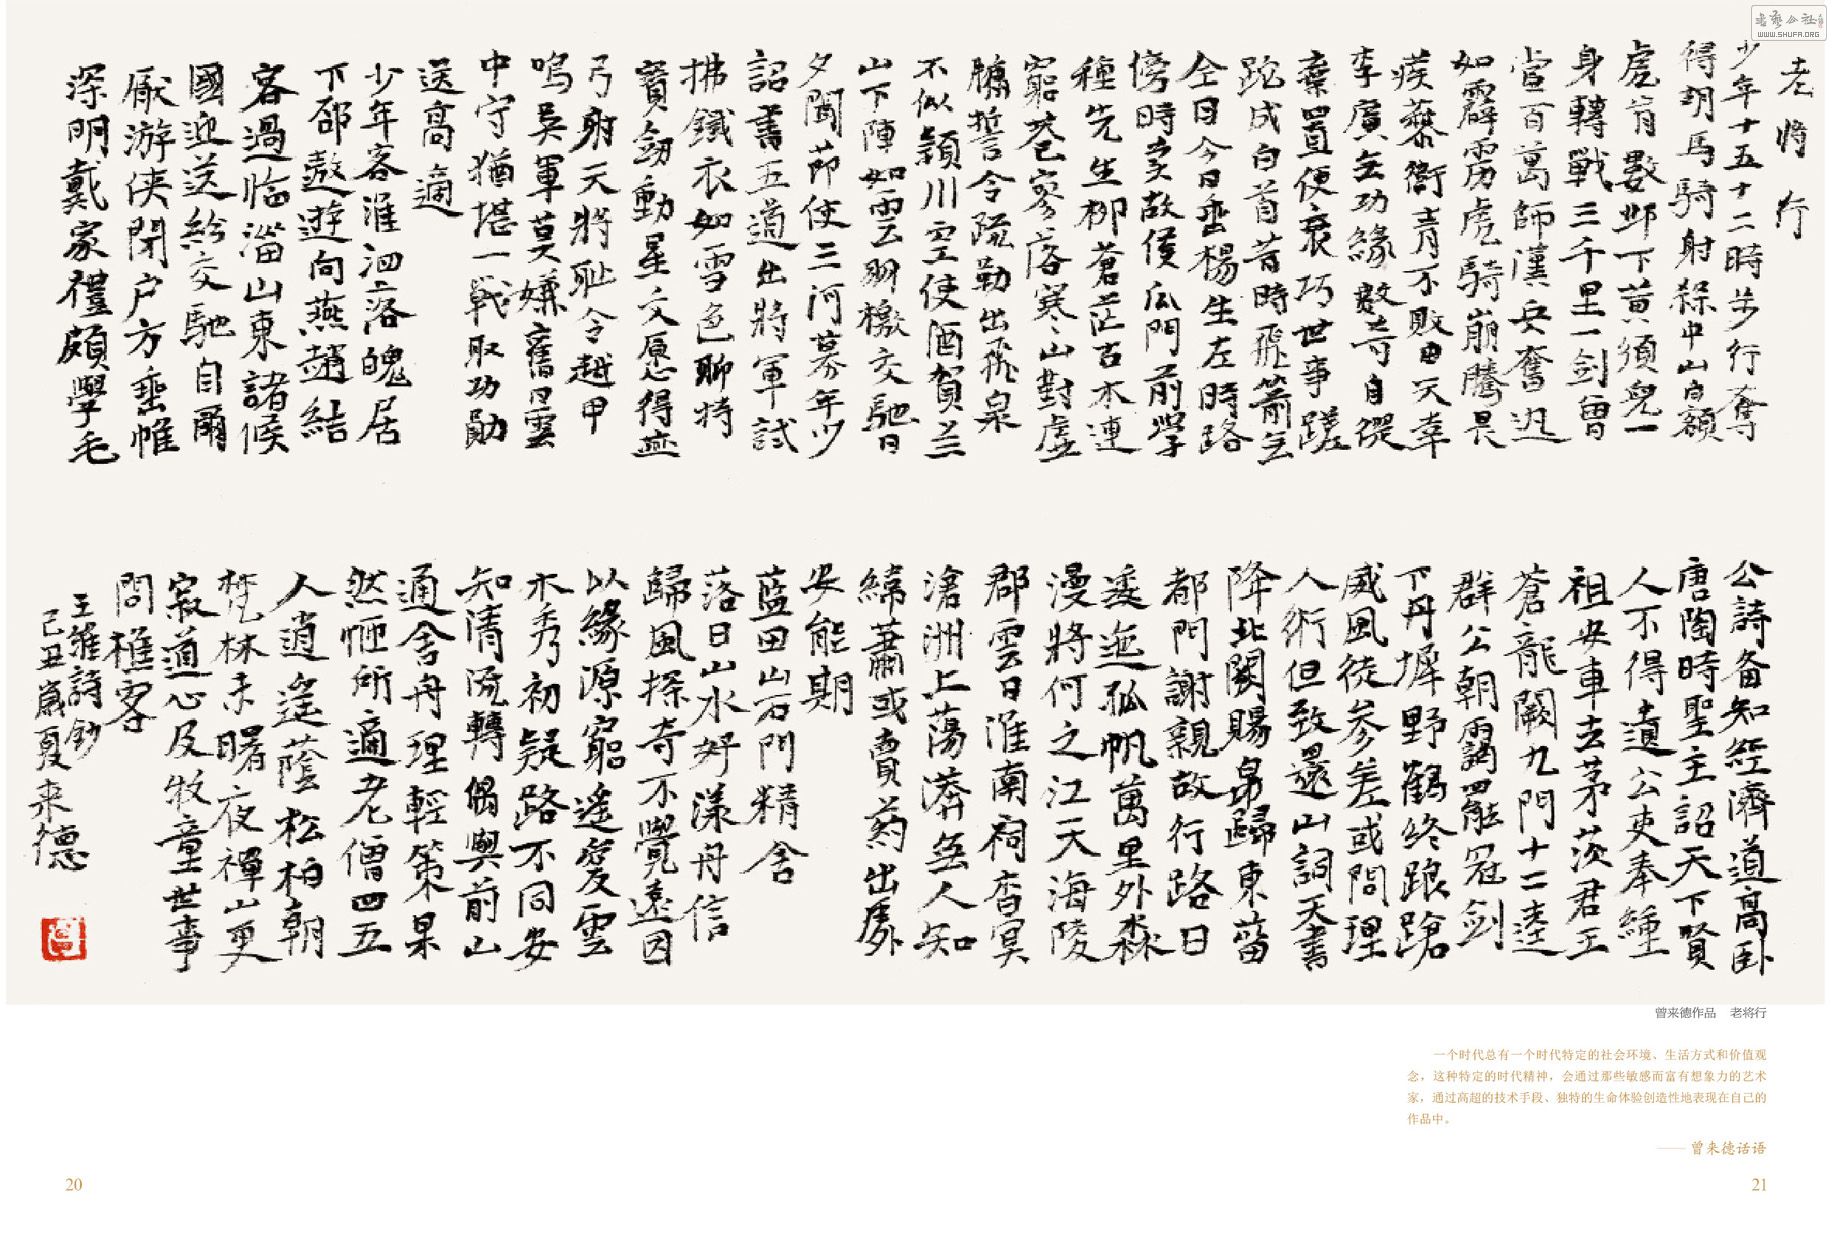 老將行
少年十五十二時步行奪
得胡馬騎射殺中山白額
虎肯數邺下黄須兒一
身轉戰三千里一剑曾
當百萬師漢兵奮迅
如霹靂虎騎崩騰畏
蒺藜衞青不敗由天幸
李廣無功緣數奇自從
棄置便衰巧世事蹉
跎成白首昔時飛箭無
全目今日垂楊生左肘路
傍時賣故侯瓜門前學
種先生柳蒼茫古木連
窮巷寥落寒山對虛
牖誓令疏勒出飛泉
不似潁川空使酒賀兰
山下陣如雲羽檄交馳日
夕聞節使三河募年少
詔書五道出將軍試
拂鐵衣如雪色聊持
寶劍動星文愿得燕
弓射天將耻令越甲
鳴吳軍莫嫌舊日雲
中守猶堪一戰取功勛
送高適
少年客淮泗落魄居
下邳遨遊向燕趙結
客過临淄山東諸侯
國迎送紛交馳自爾
厭游侠閉户方垂帷
深明戴家禮頗學毛
公詩备知經濟道高卧
唐陶時聖主詔天下賢
人不得遺公吏奉纁
祖安車去茅茨君王
蒼龍闕九門十二逵
群公朝謁罷冠剑
下丹墀野鶴终踉蹌
威風徒参差或問理
人術但致還山詞天書
降北闕賜帛歸東菑
都門謝親故行路日
逶迤孤帆萬里外淼
漫將何之江天海陵
郡雲日淮南祠杳冥
滄洲上蕩漭無人知
緯蕭或賣药出處
安能期
藍田山石門精舍
落日山水好漾舟信
歸風探奇不覺遠因
以緣源窮遙愛雲
木秀初疑路不同安
知清流轉偶與前山
通舍舟理輕策果
然愜所適老僧四五
人逍遙蔭松柏朝
梵林未曙夜禪山更
寂道心及牧童世事
問樵客
王維詩鈔
己丑歲夏来德
曾来德作品 老将行
一个时代总有一个时代特定的社会环境、生活方式和价值观
念，这种特定的时代精神，会通过那些敏感而富有想象力的艺术
家，通过高超的技术手段、独特的生命体验创造性地表现在自己的
作品中。
—— 曾来德话语
20
21
WWW.SHUFA.ORG